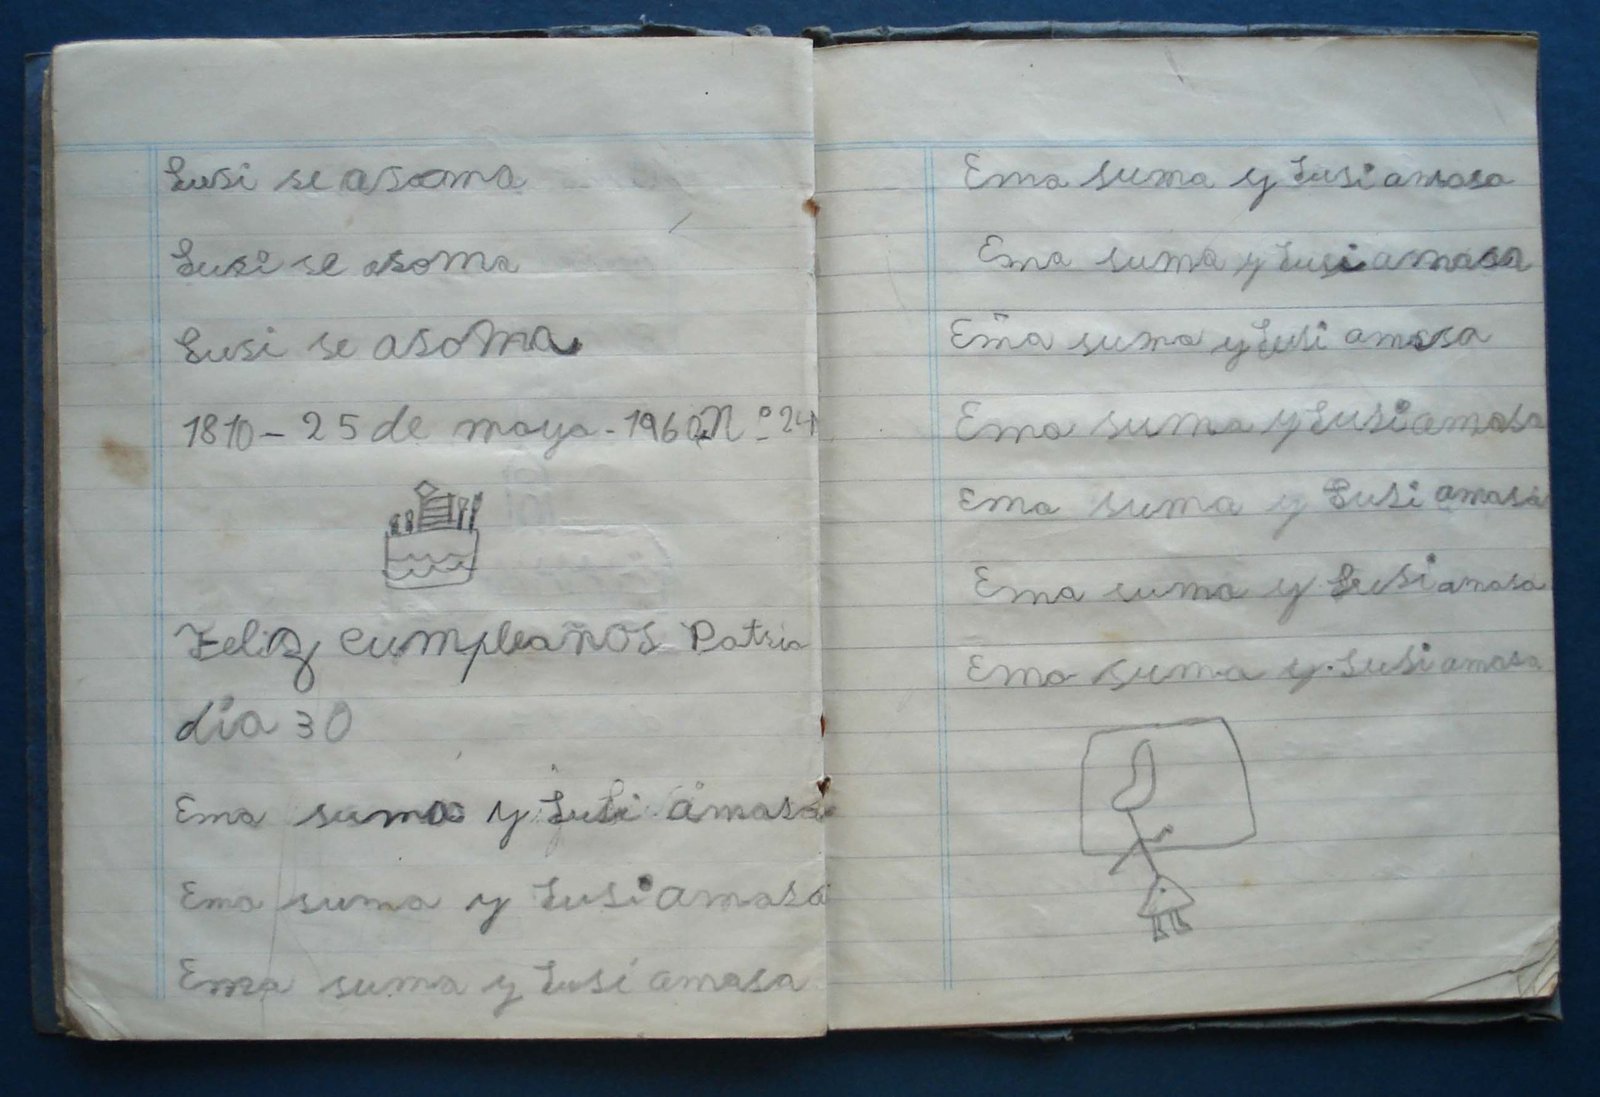 Lusi se asoma
Lusi se asoma
Lusi se asoma
1810 - 25 de mayo - 1960 Nº 24
Feliz cumpleaños Patria
día 30
Ema suma y Lusi amasa
Ema suma y Lusi amasa
Ema suma y Lusi amasa
Ema suma y Lusi amasa
Ema suma y Lusi amasa
Ema suma y Lusi amasa
Ema suma y Lusi amasa
Ema suma y Lusi amasa
Ema suma y Lusi amasa
Ema suma y Lusi amasa